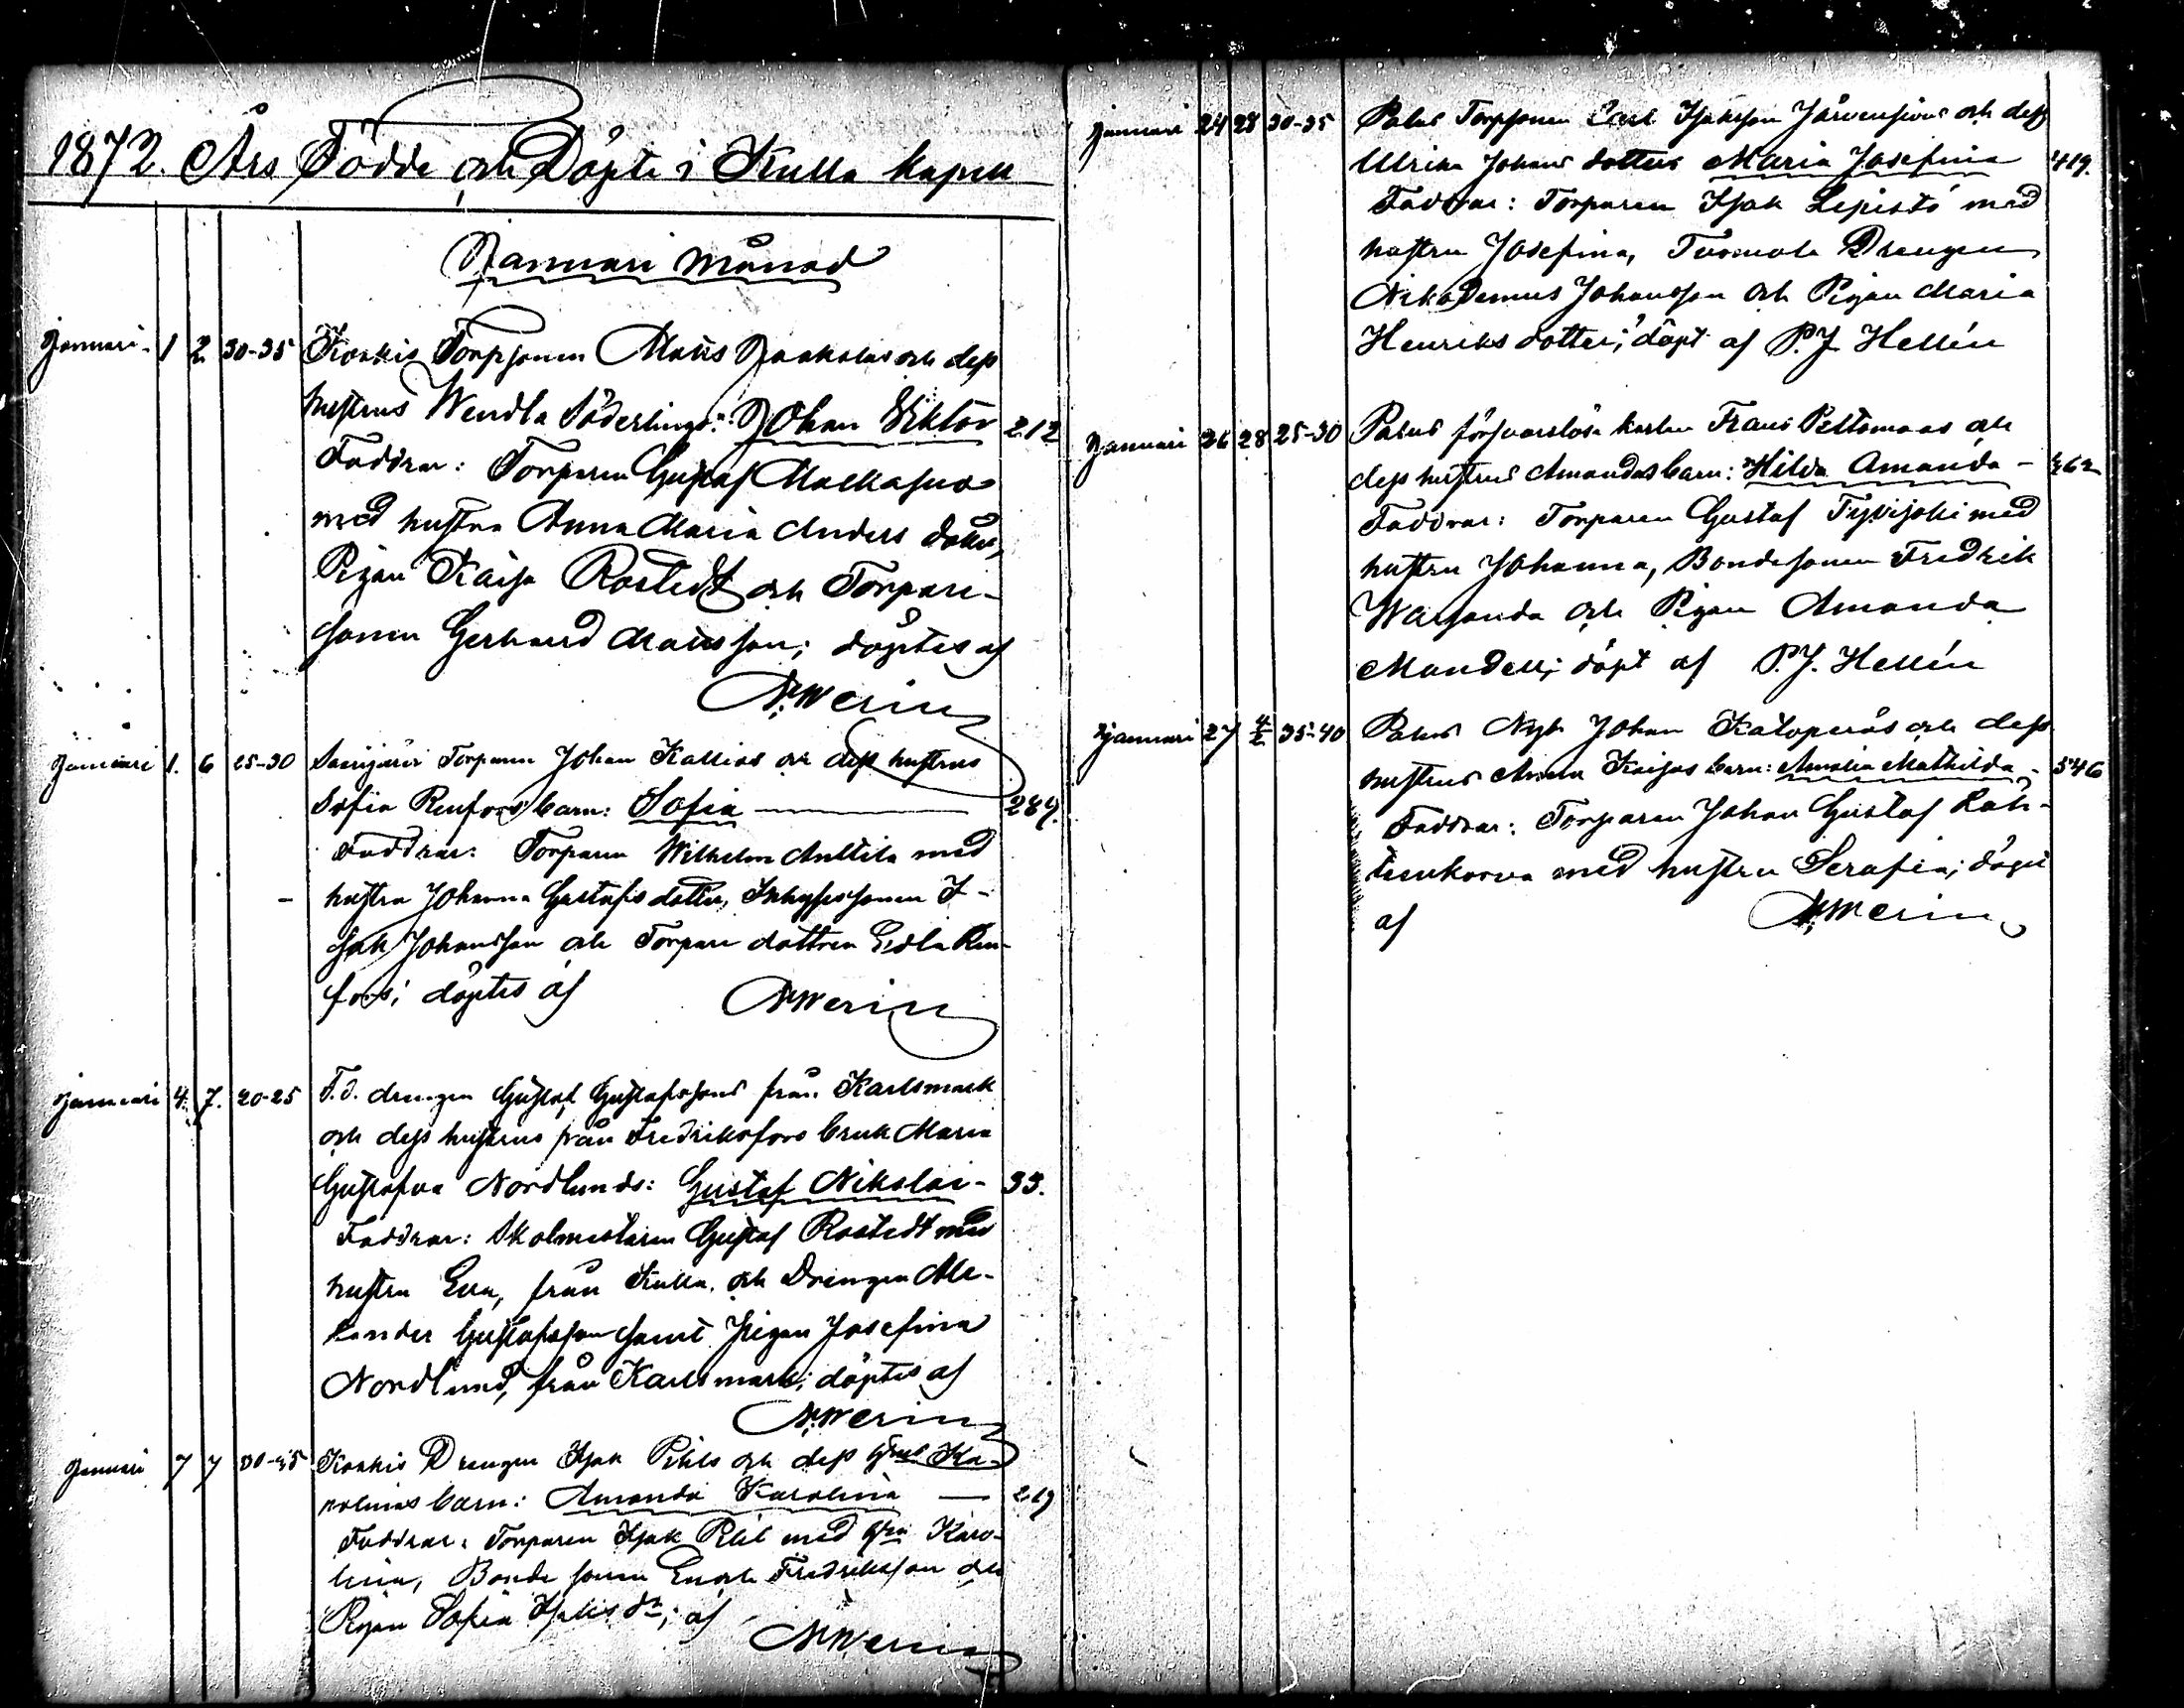 1872. Års Födde och Döpte i Kulla kapell
Januari månad
Januari 1 2 30-35 Koskis Torpsonen Matts Jaakolas och dess
hustrus Wendla Söderlings: Johan Viktor 212
Faddrar: Torparen Gustaf Malkasuo
med hustru Anna Maria Anders dotter,
Pigan Kaisa Rostedt och Torpare-
sonen Gerhard Matsson; döptes af
Werin
Januari 1. 6 25-30 Torparen Johan Kallios och dess hustrus
Sofia Renfors barn: Sofia — 289.
Faddrar: Torparen Wilhelm Anttila med
hustru Johanna Gustafs dotter, Inhysessonen I-
sak Johansson och Torpare dottren Edla Ren-
fors; döptes af Werin
Januari 4. 7. 20-25 F.d. drengen Gustaf Gustafssons från Karlsmark
och dess hustrus från Fredriksfors bruk Maria
Gustafva Nordlunds: Gustaf Nikolai - 33.
Faddrar: Skolmästaren Gustaf Rostedt med
hustru Eva, från Kulla, och Drengen
Gustafsson samt Pigan Josefina
Nordlund, från Karlsmark; döptes af
Werin
Januari 7 7 Koskis Drengen Isak Pihls och dess Hrus Ka-
rolinas barn: Amanda Karolina — 219
Faddrar: Torparen Isak Pihl med Hru Karo-
lina, Bonde sonen Enoch Fredriksson och
Pigan Sofia Isaks dr; af Werin
Januari 24 28 30-35 Palus Torpsonen Carl Isaksson Järvensivus och dess
Ulrika Johans dotters Maria Josefina 419.
Faddrar: Torparen Isak Lepistö med
hustru Josefina, Drengen
Nikodemus Johansson och Pigan Maria
Henriks dotter; döpt af P.J. Hellén
Januari 26 28 25-30 Palus försvarslöse karlen Frans Peltomaas och
dess hustrus Amandas barn: Hilda Amanda -
Faddrar: Torparen Gustaf Tyvijoki med
hustru Johanna, Bondesonen Fredrik
Warsanda och Pigan Amanda
Mandell; döpt af P.J. Hellén
Januari 27 4/2 35-40 Palus Nyb Johan Katoperäs och dess
hustrus Anna Kaisas barn: Amalia Mathilda - 546
Faddrar: Torparen Johan Gustaf Lah-
tenkorva med hustru Serafia; döpt
af Werin